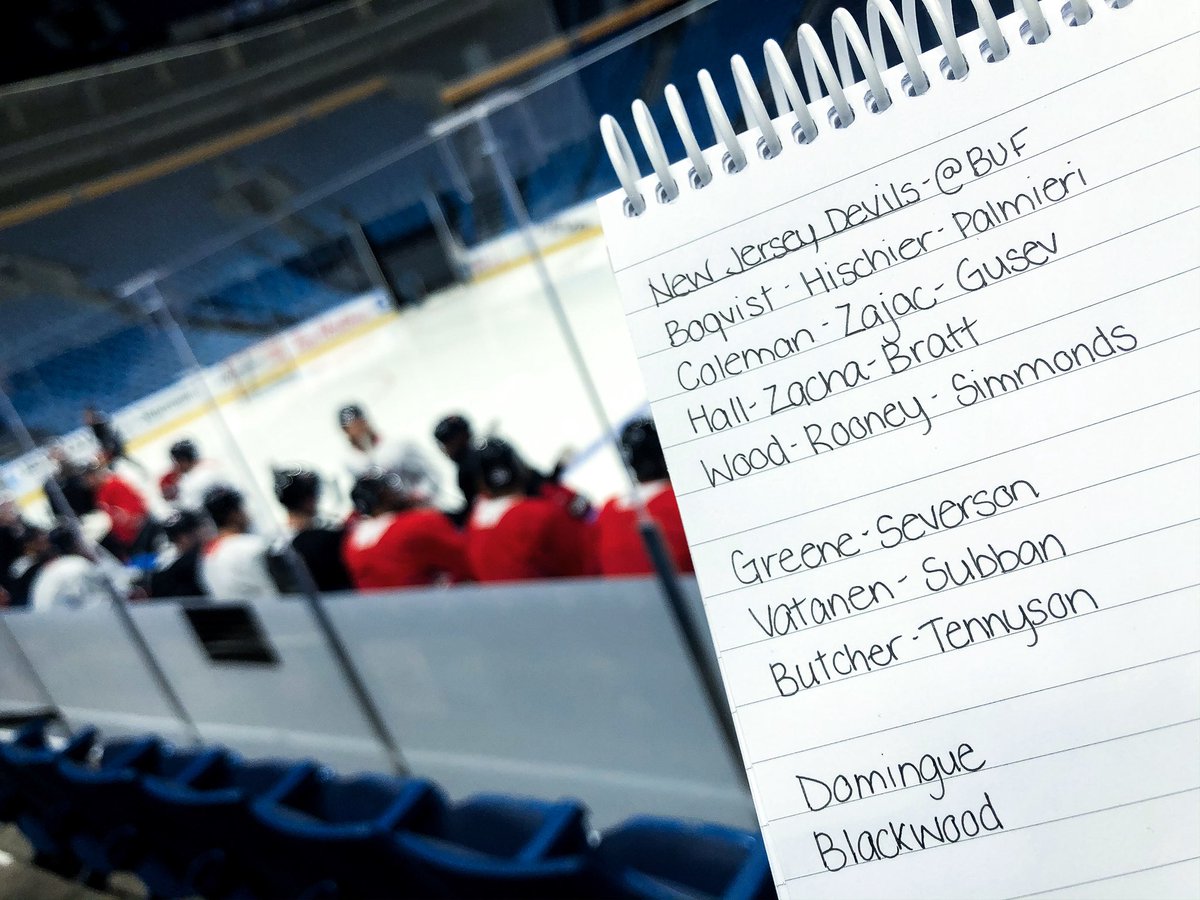 New Jersey Devils-@BUF
Boqvist-Hischier-Palmieri
Coleman-Zajac-Gusev
Hall-Zacha-Bratt
Wood-Rooney-Simmonds
Greene-Severson
Vatanen-Subban
Butcher-Tennyson
Domingue
Blackwood